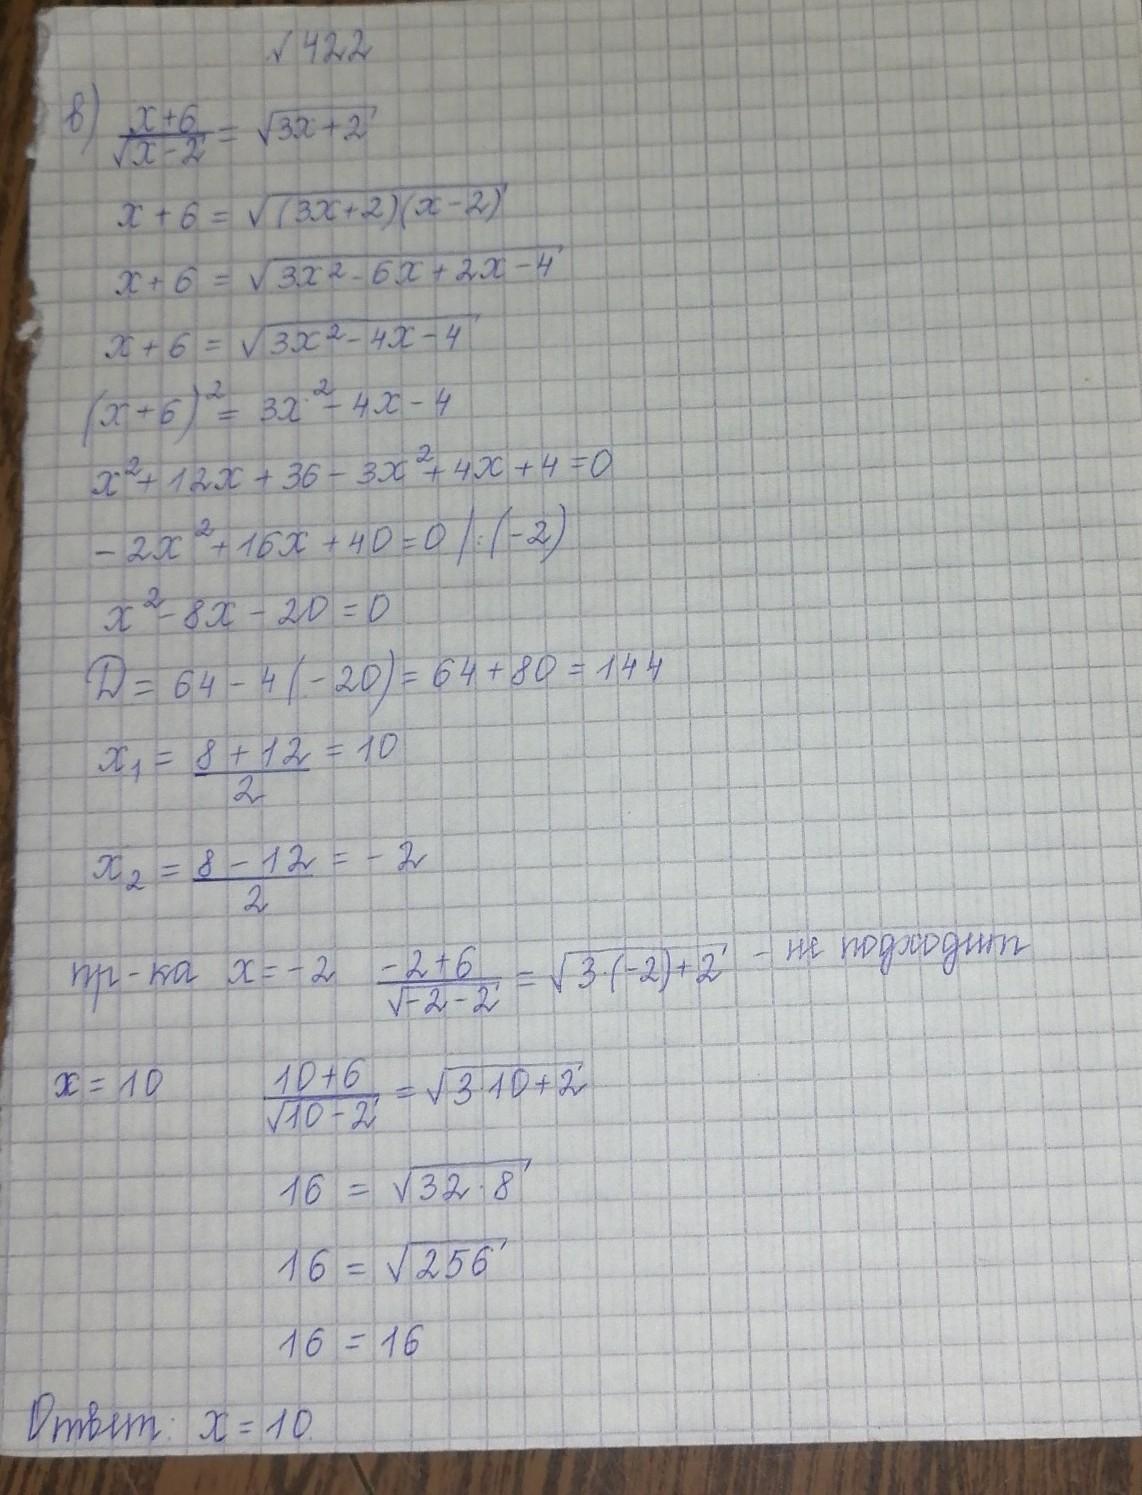 √422
в) (x+6)/√(x-2) = √(3x+2)
x+6 = √((3x+2)(x-2))
x+6 = √(3x²-6x+2x-4)
x+6 = √(3x²-4x-4)
(x+6)² = 3x²-4x-4
x²+12x+36-3x²+4x+4=0
-2x²+16x+40=0 |:(-2)
x²-8x-20=0
D = 64-4(-20) = 64+80 = 144
x₁ = (8+12)/2 = 10
x₂ = (8-12)/2 = -2
пр-ка x=-2 (-2+6)/√(-2-2) = √(3·(-2)+2) - не подходит
x=10 (10+6)/√(10-2) = √(3·10+2)
16 = √(32·8)
16 = √256
16 = 16
Ответ: x=10.